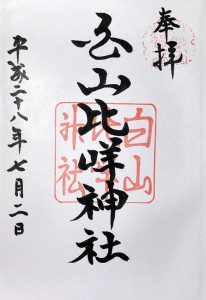 奉拝
白山比咩神社
白山
比咩
神社
平成二十八年七月二日